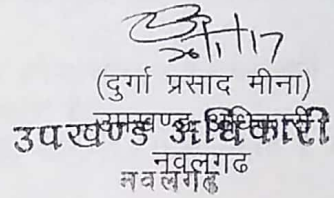 26/1/17
(दुर्गा प्रसाद मीना)
उपखण्ड अधिकारी
उपखण्ड अधिकारी
नवलगढ
नवलगढ